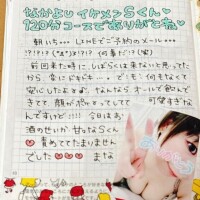 なかよしイケメンSくん♡
120分コースでありがとね♡
朝いち… LINEでご予約のメール…
!?!?!? (°∀°)!?!? 何事だ!?(笑)
前回来た時に、しばらくは来ないと思ってた
から 変にどきっと… で!も!何もなくて
安心したよ なんなら オールで飲んで
きてて、顔が 可愛すぎな
んですけど!!! 今日はあ
酒のせいか 甘えなSくん
責めててたまりません
でした♡♡♡ まな